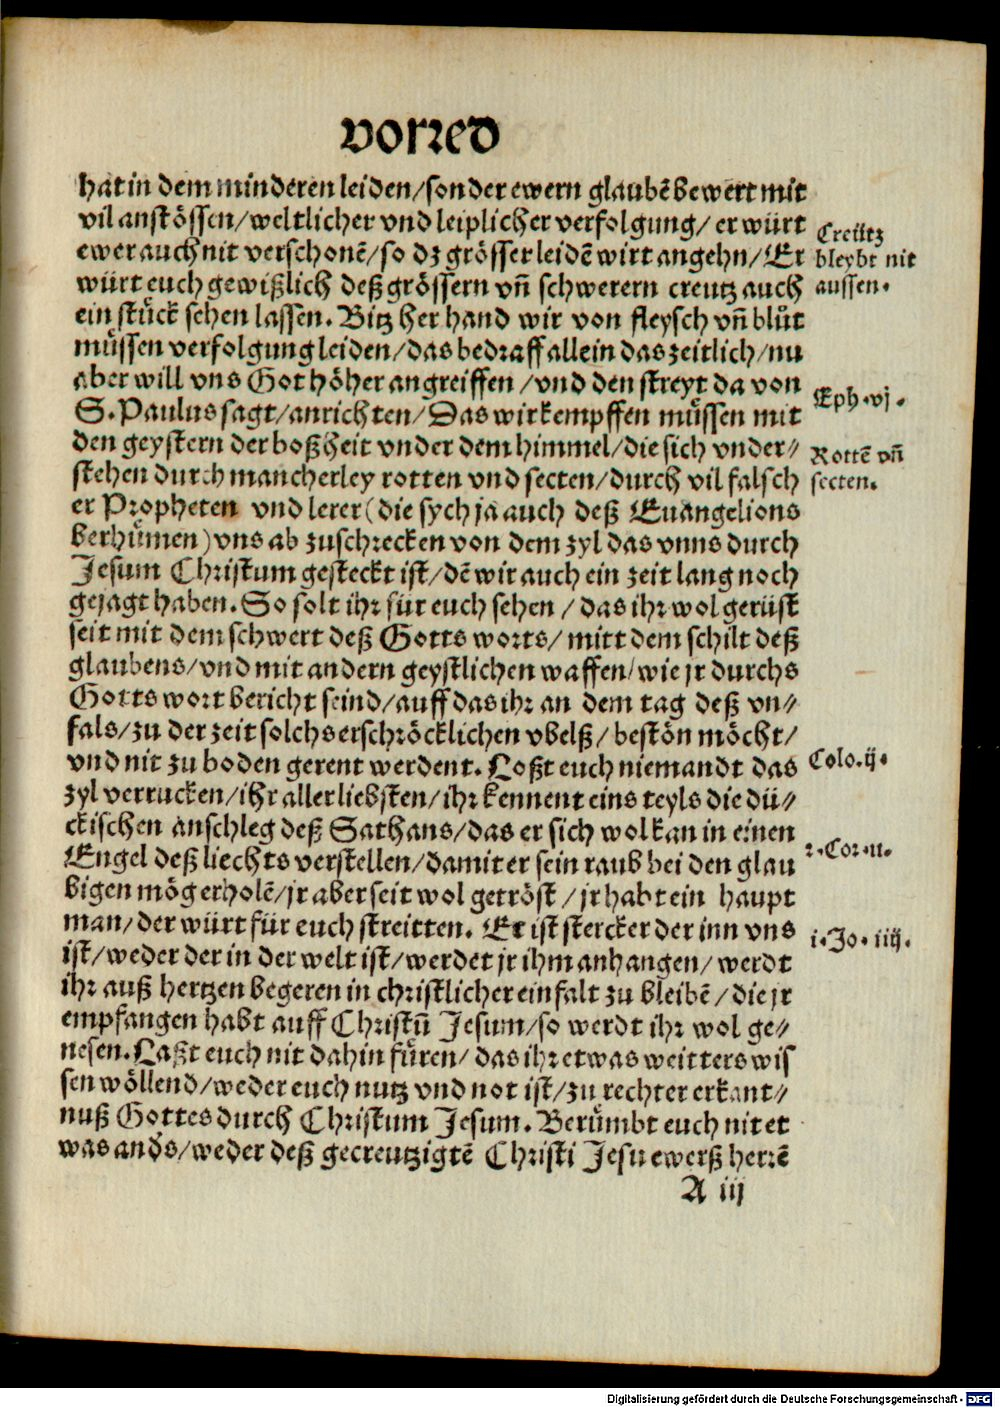 vorred
hat in dem minderen leiden/sonder ewern glaubẽ bewert mit
vil anstössen/weltlicher vnd leiplicher verfolgung/ er würt
ewer auch nit verschonẽ/so dz grösser leidẽ wirt angehn/ Er
würt euch gewißlich deß grössern vñ schwerern creutz auch
ein stuck sehen lassen. Bitz her hand wir von fleysch vñ blůt
můssen verfolgung leiden/das bedraff allein das zeitlich/nu
aber will vns Got höher angreiffen/vnd den streyt da von
S. Paulus sagt/anrichten/Das wir kempffen můssen mit
den geystern der boßheit vnder dem himmel/die sich vnder//
stehen durch mancherley rotten vnd secten/durch vil falsch
er Propheten vnd lerer (die sych ja auch deß Euangelions
berhůmen) vns ab zuschrecken von dem zyl das vnns durch
Jesum Christum gesteckt ist/dẽ wir auch ein zeit lang noch
gejagt haben. So solt ihr für euch sehen/das ihr wol gerüst
seit mit dem schwert deß Gotts worts/ mitt dem schilt deß
glaubens/vnd mit andern geystlichen waffen/wie jr durchs
Gotts wort bericht seind/auff das ihr an dem tag deß vn//
fals/zu der zeit solchs erschröcklichen vbelß/bestön möcht/
vnd nit zu boden gerent werdent. Loßt euch niemandt das
zyl verrucken/ihr allerliebsten/ihr kennent eins teyls die dü//
ckischen anschleg deß Sathans/das er sich wol kan in einen
Engel deß liechts verstellen/damit er sein raub bei den glau
bigen mög erholẽ/jr aber seit wol getröst/jr habt ein haupt
man/der würt für euch streitten. Er ist stercker der inn vns
ist/weder der in der welt ist/werdet jr ihm anhangen/ werdt
ihr auß hertzen begeren in christlicher einfalt zu bleibẽ/die jr
empfangen habt auff Christũ Jesum/so werdt ihr wol ge//
nesen. Laßt euch nit dahin fůren/das ihr etwas weitters wis
sen wöllend/weder euch nutz vnd not ist/zu rechter erkant//
nuß Gottes durch Christum Jesum. Berůmbt euch nit et
was anďs/weder deß gecreutzigtẽ Christi Jesu ewerß herrẽ
A iij
Creütz
bleybt nit
aussen.
Eph.vj.
Rottẽ vñ
secten.
Colo.ij.
2.Cor.11.
i.Jo.iiij.
Digitalisierung gefördert durch die Deutsche Forschungsgemeinschaft - DFG